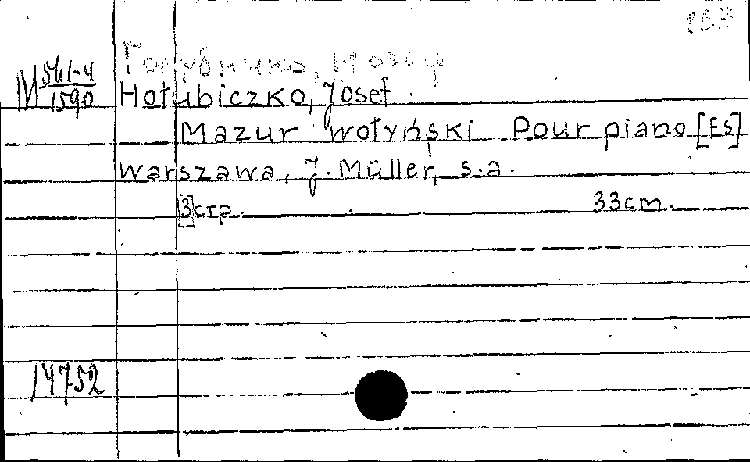 163
Голубичко, Иозеф
M 561-4
1590
Hołubiczko, Josef.
Mazur wołyński Pour piano [Es]
Warszawa, J. Müller, s.a.
[3] стр. 33 cm.
14752